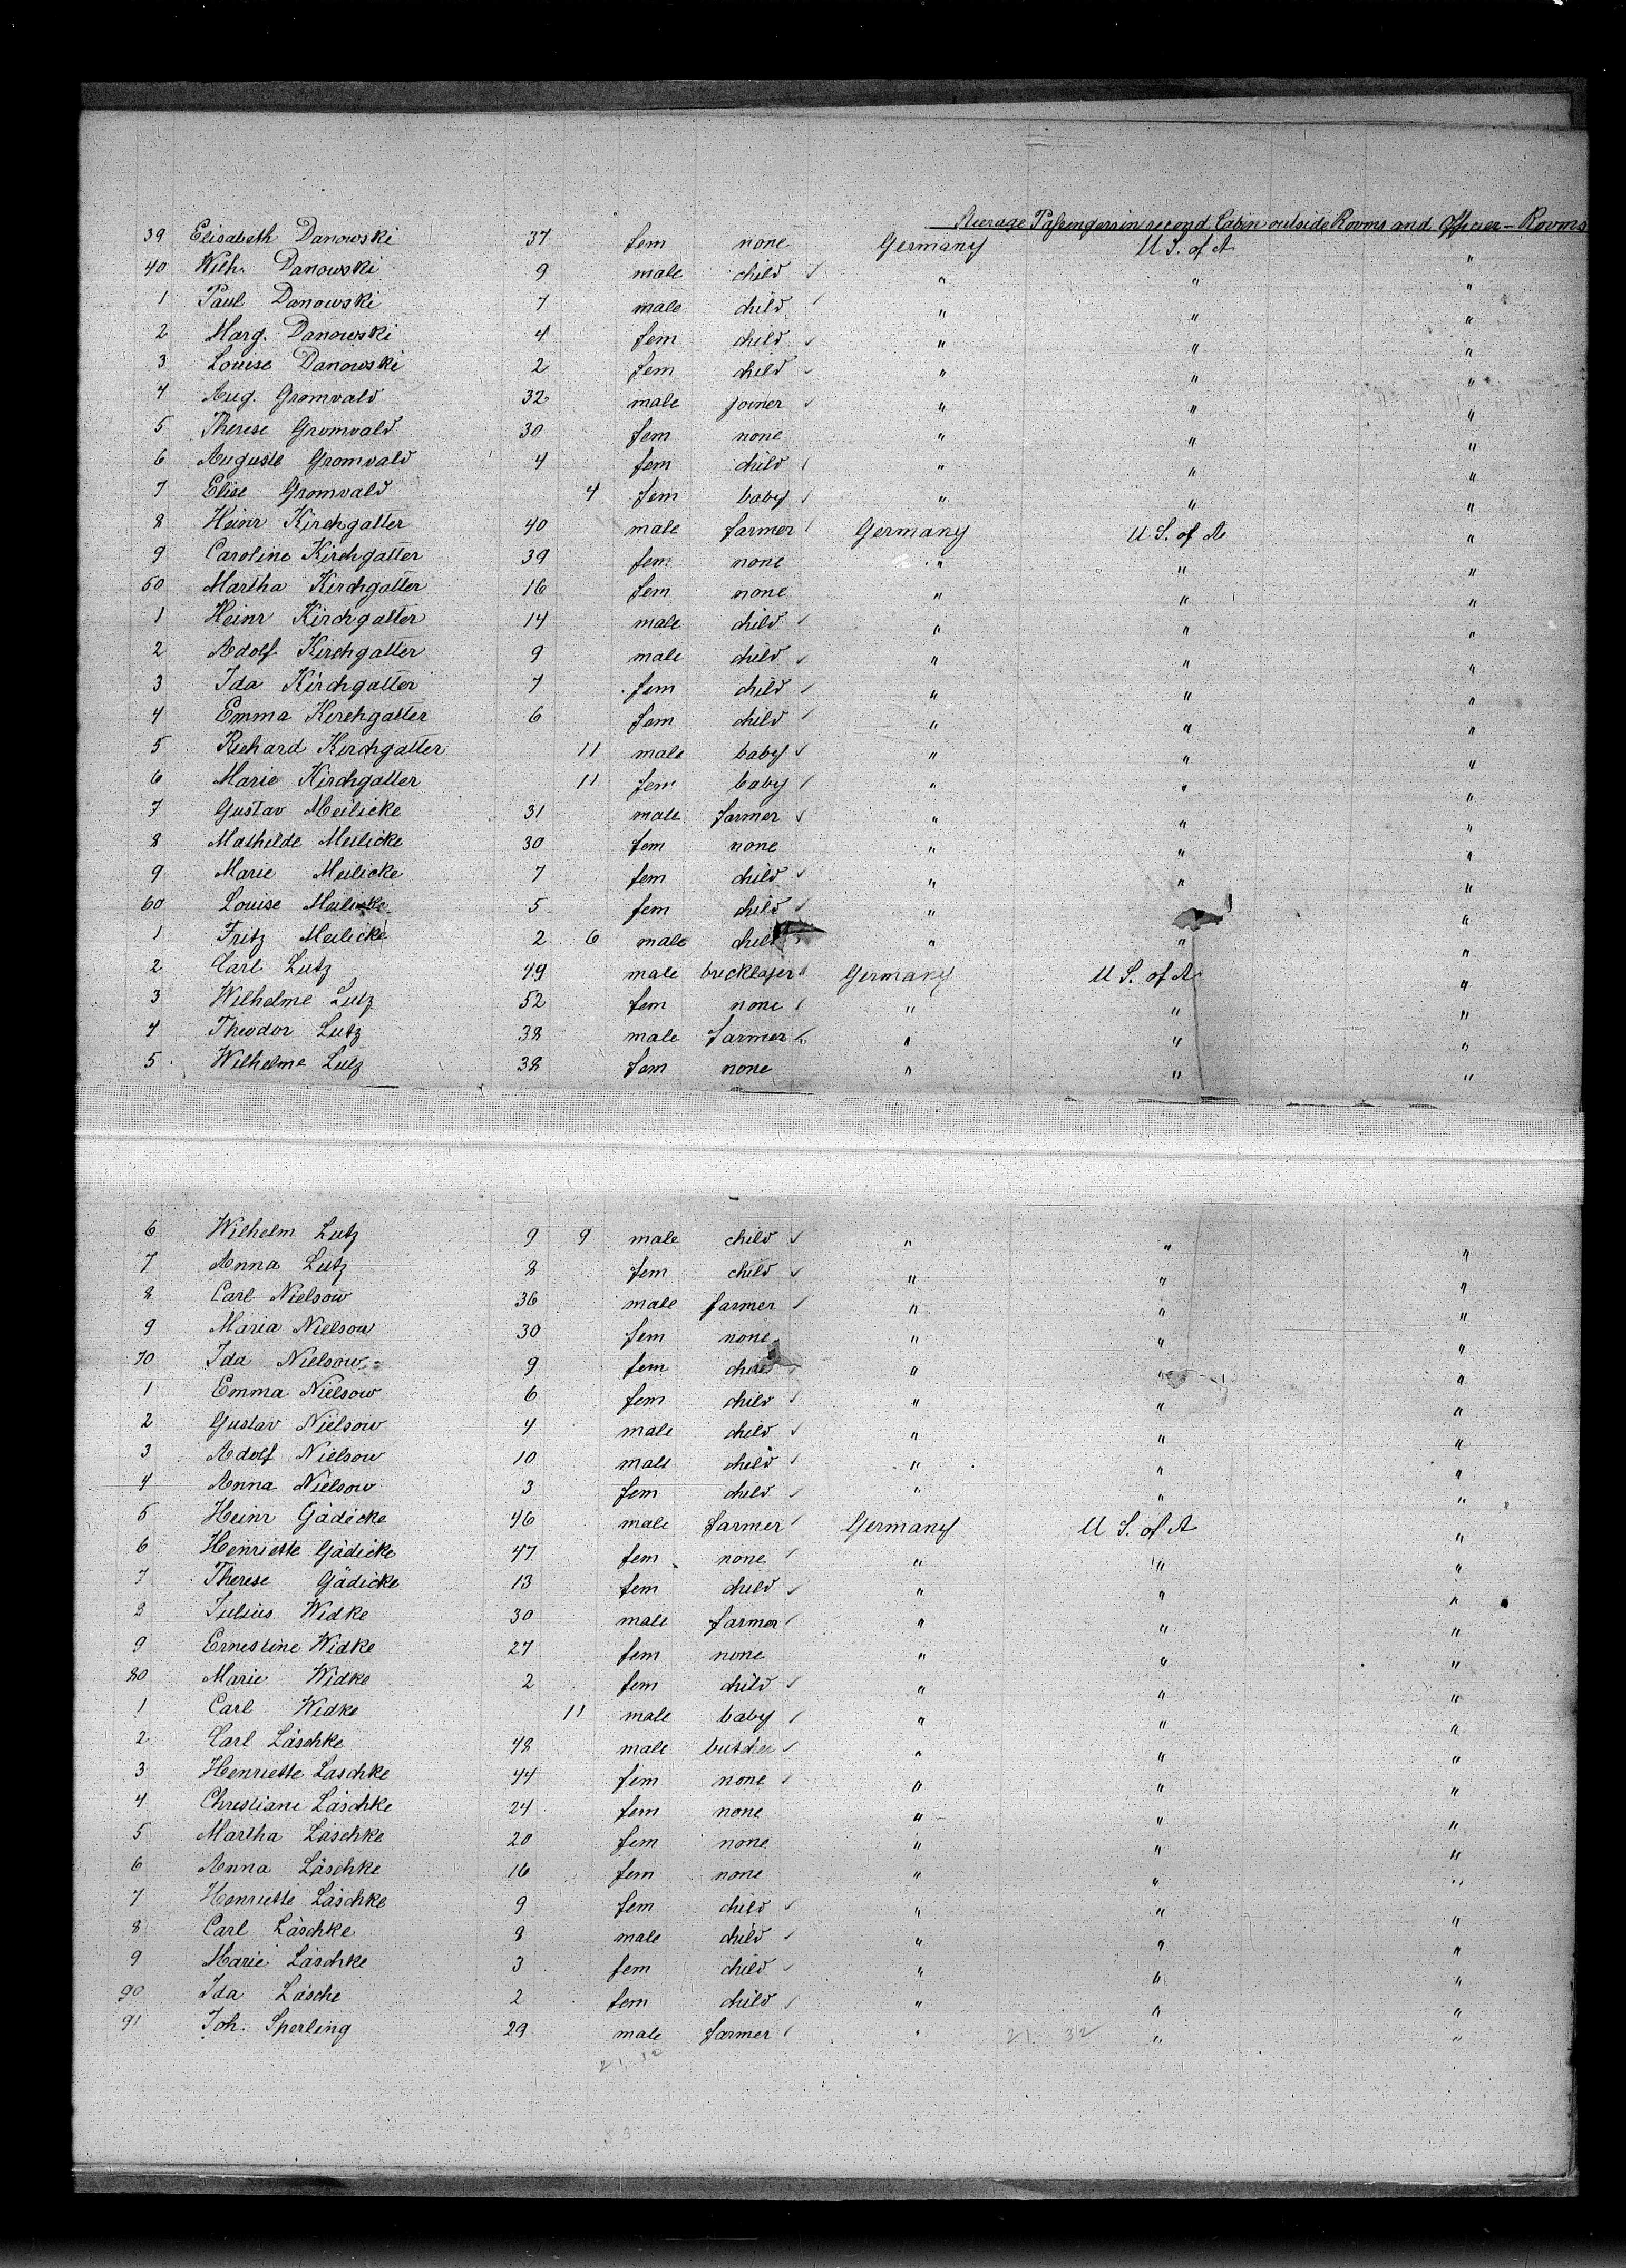 Steerage Passengers in second Cabin outside Rooms and Officier-Rooms
39 Elisabeth Danowski 37 fem none Germany U S. of A "
40 Wilh. Danowski 9 male child " " "
1 Paul Danowski 7 male child " " "
2 Marg. Danowski 4 fem child " " "
3 Louise Danowski 2 fem child " " "
4 Aug. Gromvald 32 male joiner " " "
5 Therese Gromvald 30 fem none " " "
6 Auguste Gromvald 4 fem child " " "
7 Elise Gromvald 4 fem baby " " "
8 Heinr Kirchgatter 40 male farmer Germany U S. of A "
9 Caroline Kirchgatter 39 fem none " " "
50 Martha Kirchgatter 16 fem none " " "
1 Heinr Kirchgatter 14 male child " " "
2 Adolf Kirchgatter 9 male child " " "
3 Ida Kirchgatter 7 fem child " " "
4 Emma Kirchgatter 6 fem child " " "
5 Richard Kirchgatter 11 male baby " " "
6 Marie Kirchgatter 11 fem baby " " "
7 Gustav Meilicke 31 male farmer " " "
8 Mathilde Meilicke 30 fem none " " "
9 Marie Meilicke 7 fem child " " "
60 Louise Meilicke 5 fem child " "
1 Fritz Meilicke 2 6 male child " " "
2 Carl Lutz 49 male bricklayer Germany U S. of A "
3 Wilhelme Lutz 52 fem none " " "
4 Theodor Lutz 38 male farmer " " "
5 Wilhelme Lutz 38 fem none " " "
6 Wilhelm Lutz 9 9 male child " " "
7 Anna Lutz 8 fem child " " "
8 Carl Nielsow 36 male farmer " " "
9 Maria Nielsow 30 fem none " " "
70 Ida Nielsow 9 fem child " " "
1 Emma Nielsow 6 fem child " " "
2 Gustav Nielsow 4 male child " " "
3 Adolf Nielsow 10 male child " " "
4 Anna Nielsow 3 fem child " " "
5 Heinr Gädicke 46 male farmer Germany U S. of A "
6 Henriette Gädicke 47 fem none " " "
7 Therese Gädicke 13 fem child " " "
8 Julius Widke 30 male farmer " " "
9 Ernestine Widke 27 fem none " " "
80 Marie Widke 2 fem child " " "
1 Carl Widke 11 male baby " " "
2 Carl Läschke 48 male butcher " " "
3 Henriette Laschke 44 fem none " " "
4 Christiane Läschke 24 fem none " " "
5 Martha Läschke 20 fem none " " "
6 Anna Läschke 16 fem none " " "
7 Henriette Läschke 9 fem child " " "
8 Carl Läschke 8 male child " " "
9 Marie Läschke 3 fem child " " "
90 Ida Läsche 2 fem child " " "
91 Joh. Sperling 29 male farmer " 21. 32 " "
21. 32